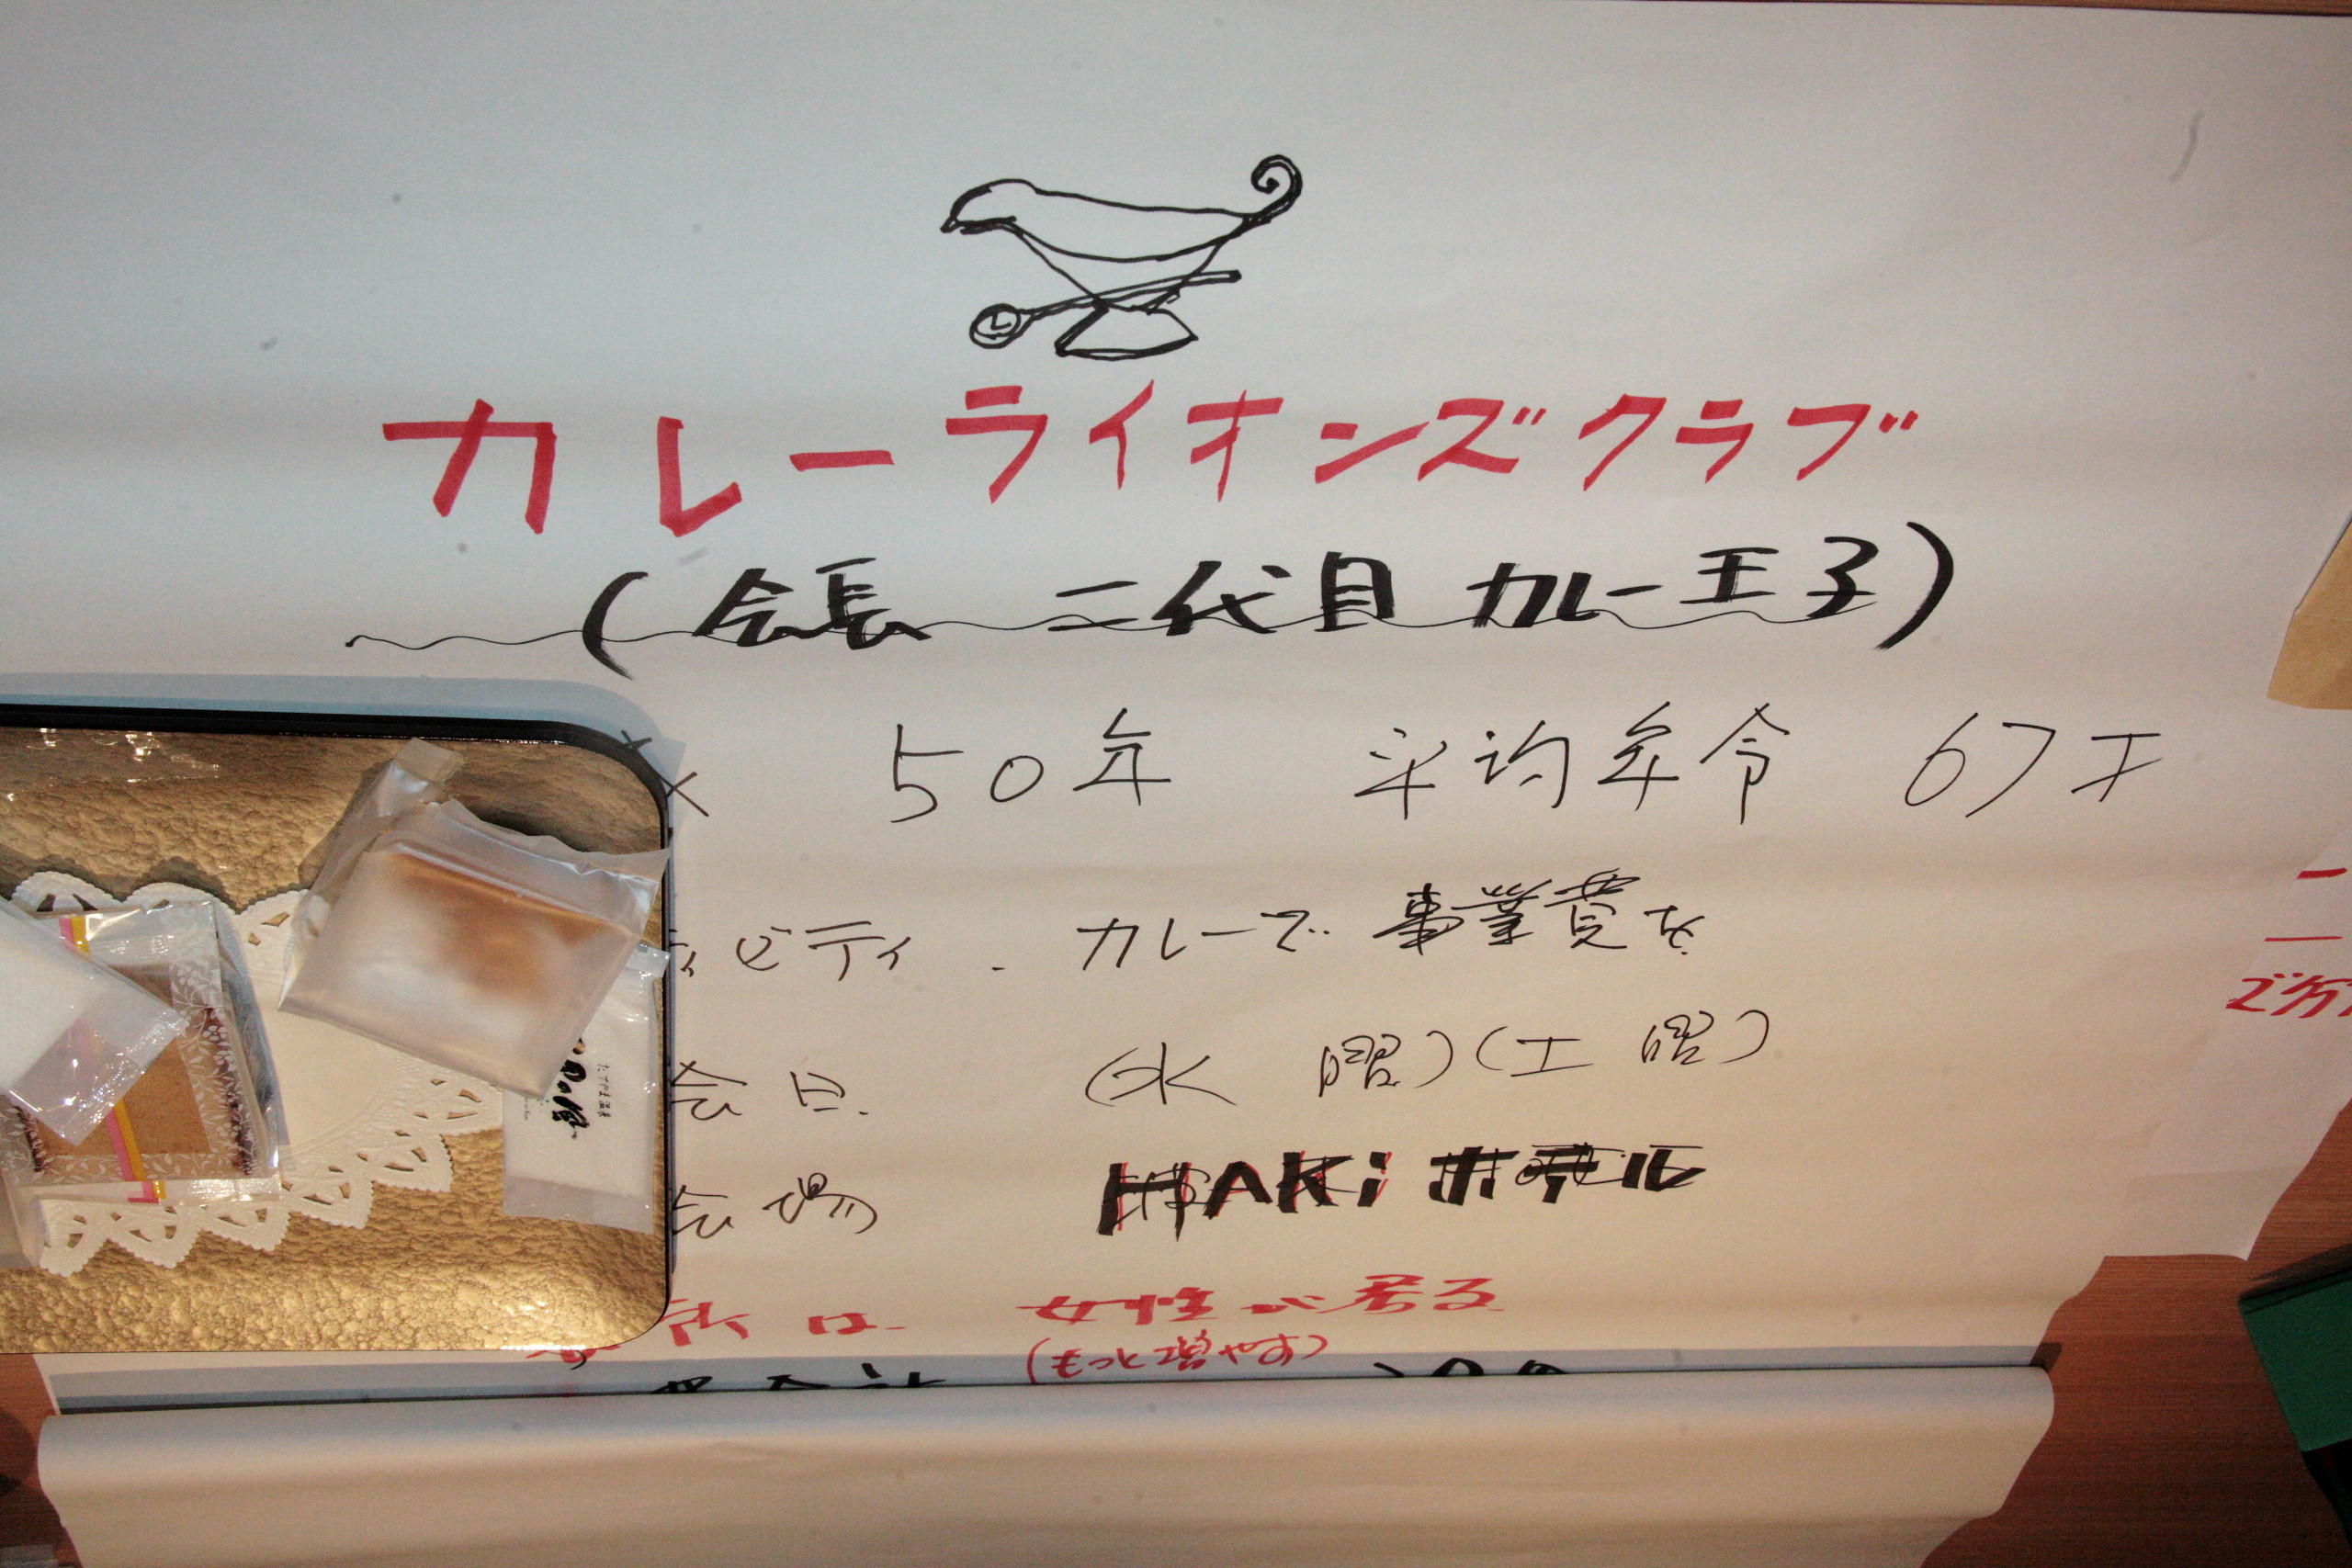 L
カレーライオンズクラブ
(会長 二代目 カレー王子)
50年 平均年令 67才
ビティ . カレーで 事業費を
会日. (水曜)(土曜)
会場 HAKi ホテル
所は 女性が居る
(もっと増やす)